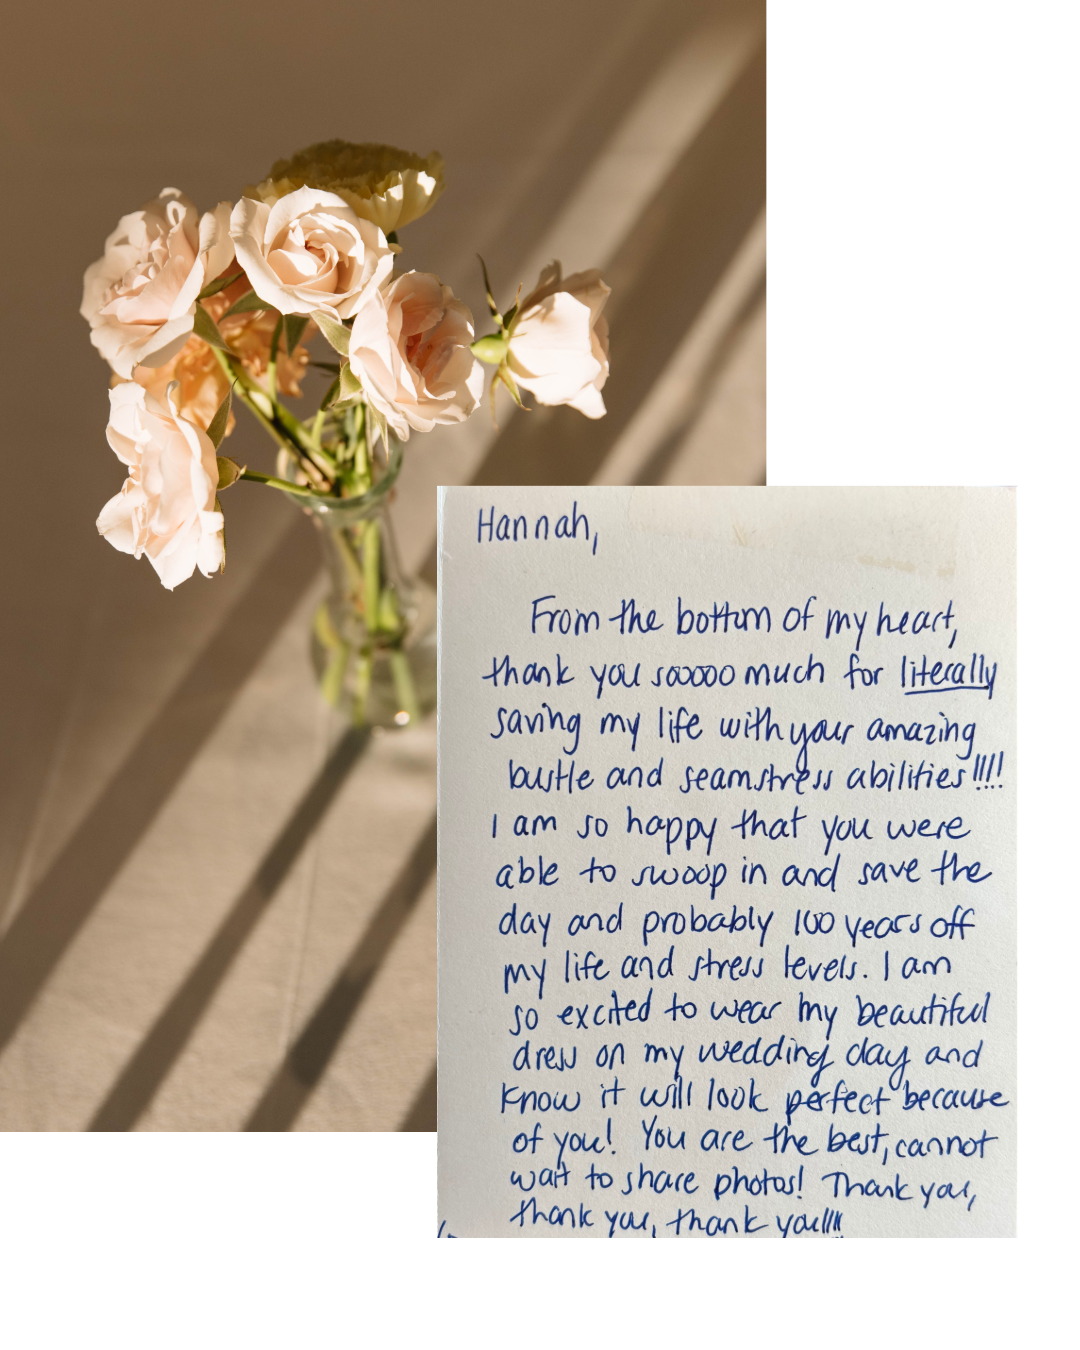 Hannah,
From the bottom of my heart,
thank you sooooo much for literally
saving my life with your amazing
bustle and seamstress abilities!!!!
I am so happy that you were
able to swoop in and save the
day and probably 100 years off
my life and stress levels. I am
so excited to wear my beautiful
dress on my wedding day and
know it will look perfect because
of you! You are the best, cannot
wait to share photos! Thank you,
thank you, thank you!!!!